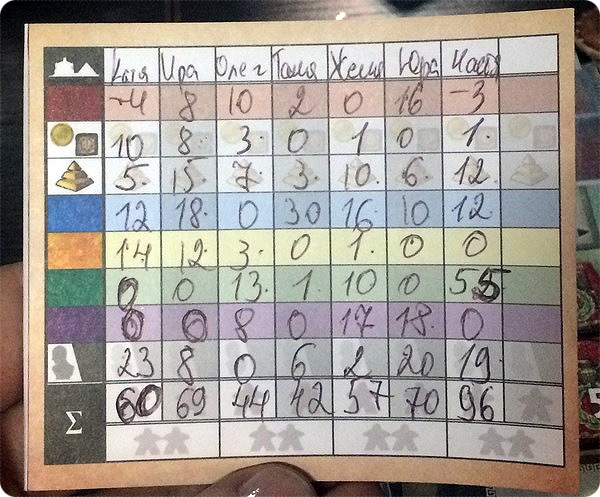 Катя Ира Олег Таня Женя Юра Настя
-4 8 10 2 0 16 -3
10 8 3 0 1 0 1
5 15 7 3 10 6 12
12 18 0 30 16 10 12
14 12 3 0 1 0 0
0 0 13 1 10 0 55
0 0 8 0 17 18 0
23 8 0 6 2 20 19
Σ 60 69 44 42 57 70 96